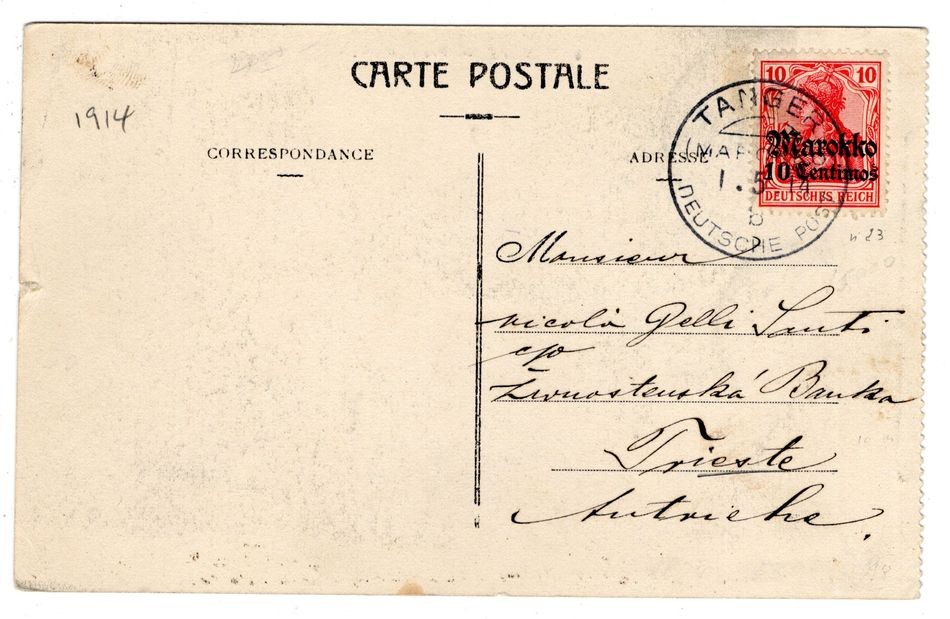 CARTE POSTALE
1914
CORRESPONDANCE
ADRESSE
TANGER
(MAROCCO)
1.5 14
b
DEUTSCHE POST
10 10
Marokko
10 Centimos
DEUTSCHES REICH
n 23
Monsieur
Nicolò Gelli Santi
c/o
Živnostenská Banka
Trieste
Autriche.